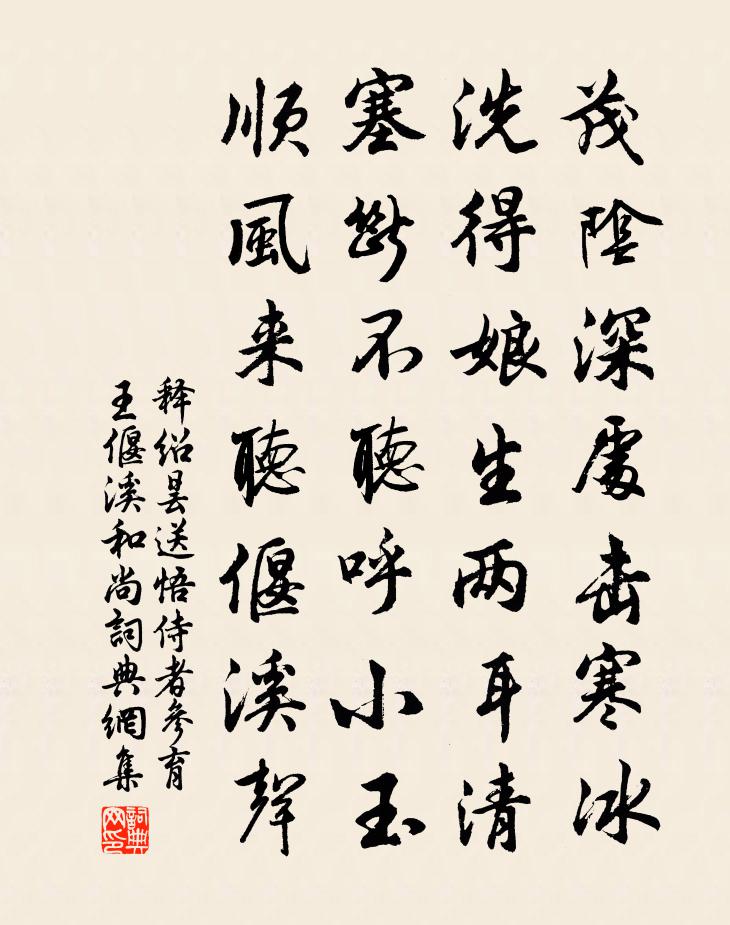 茂陰深處击寒冰
洗得娘生两耳清
塞斷不聽呼小玉
順風来聽偃溪聲
释紹昙送悟侍者參育
王偃溪和尚詞典網集
詞典
网印